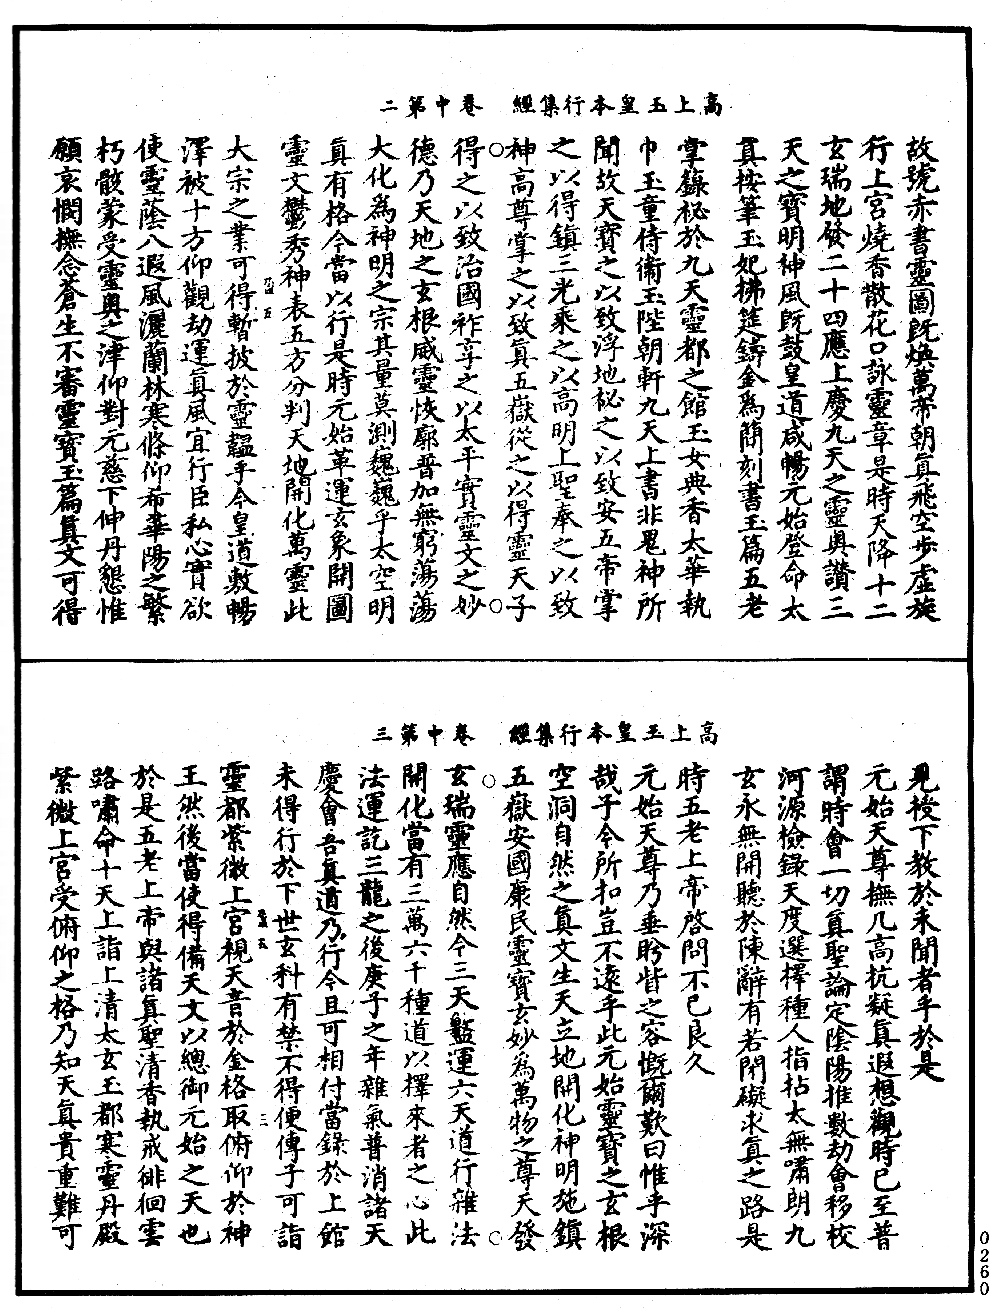 高上玉皇本行集經　卷中第二
故號赤書靈圖既煥萬帝朝真飛空步虛旋
行上宮燒香散花口詠靈章是時天降十二
玄瑞地發二十四應上慶九天之靈奧讚三
天之寶明神風既鼓皇道咸暢元始登命太
真按筆玉妃拂筵鑄金為簡刻書玉篇五老
掌錄祕於九天靈都之館玉女典香太華執
巾玉童侍衞玉陛朝軒九天上書非鬼神所
聞故天寶之以致浮地祕之以致安五帝掌
之以得鎮三光乘之以高明上聖奉之以致
神高尊掌之以致真五嶽從之以得靈天子
得之以致治國祚享之以太平實靈文之妙
德乃天地之玄根威靈恢廓普加無窮蕩蕩
大化為神明之宗其量莫測巍巍乎太空明
真有格今當以行是時元始革運玄象開圖
靈文鬱秀神表五方分判天地開化萬靈此
大宗之業可得暫披於靈韞乎今皇道敷暢
澤被十方仰觀劫運真風宜行臣私心實欲
使靈蔭八遐風灑蘭林寒條仰希華陽之繁
朽骸蒙受靈奧之津仰對元慈下伸丹懇惟
願哀憫撫念蒼生不審靈寶玉篇真文可得
高上玉皇本行集經　卷中第三
見授下教於未聞者乎於是
元始天尊撫几高抗凝真遐想觀時已至普
謂時會一切真聖論定陰陽推數劫會移校
河源檢錄天度選擇種人指拈太無嘯朗九
玄永無開聽於陳辭有若閉礙求真之路是
時五老上帝啓問不已良久
元始天尊乃垂眄眥之容慨爾歎曰惟乎深
哉子今所扣豈不遠乎此元始靈寶之玄根
空洞自然之真文生天立地開化神明施鎮
五嶽安國康民靈寶玄妙為萬物之尊天發
玄瑞靈應自然今三天鬱運六天道行雜法
開化當有三萬六千種道以擇來者之心此
法運訖三龍之後庚子之年雜氣普消諸天
慶會吾真道乃行今且可相付當錄於上館
未得行於下世玄科有禁不得便傳子可詣
靈都紫微上宮視天音於金格取俯仰於神
王然後當使得備天文以總御元始之天也
於是五老上帝與諸真聖清香執戒徘徊雲
路嘯命十天上詣上清太玄玉都寒靈丹殿
紫微上宮受俯仰之格乃知天真貴重難可
0260